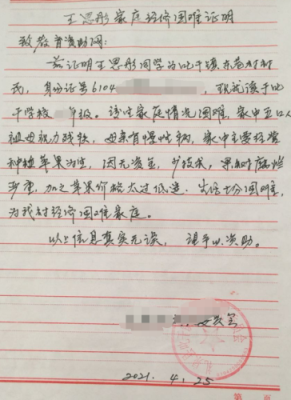 王思彤家庭经济困难证明
致教育资助网：
兹证明王思彤同学系北干镇 村村
民，身份证号6104 ，现就读于北
干学校 年级。该生家庭情况困难，家中五口人
祖母视力残疾，母亲有慢性病，家中主要经营
种植苹果为生，因无资金，少技术，果树腐烂
严重，加之苹果价格太过低迷，生活十分困难，
为我村经济困难家庭。
以上信息真实无误，请予以资助。
2021. 4. 25